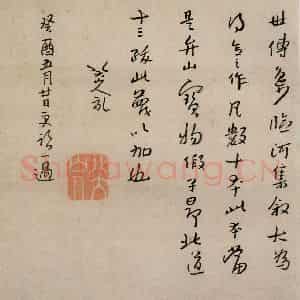 世傳為臨河集敘大為
得意之作凡數十本此本當
是弁山寶物假子昂北道
十三跋此蔑以加也
八大山人
癸酉五月廿日更訪一過
Shufawang.CN